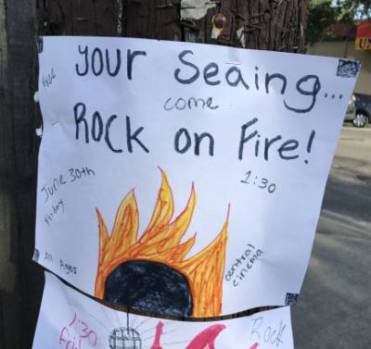 your Seaing...
come
ROCK on Fire!
1:30
June 30th
friday
All Ages
central
cinema
1:30
Rock